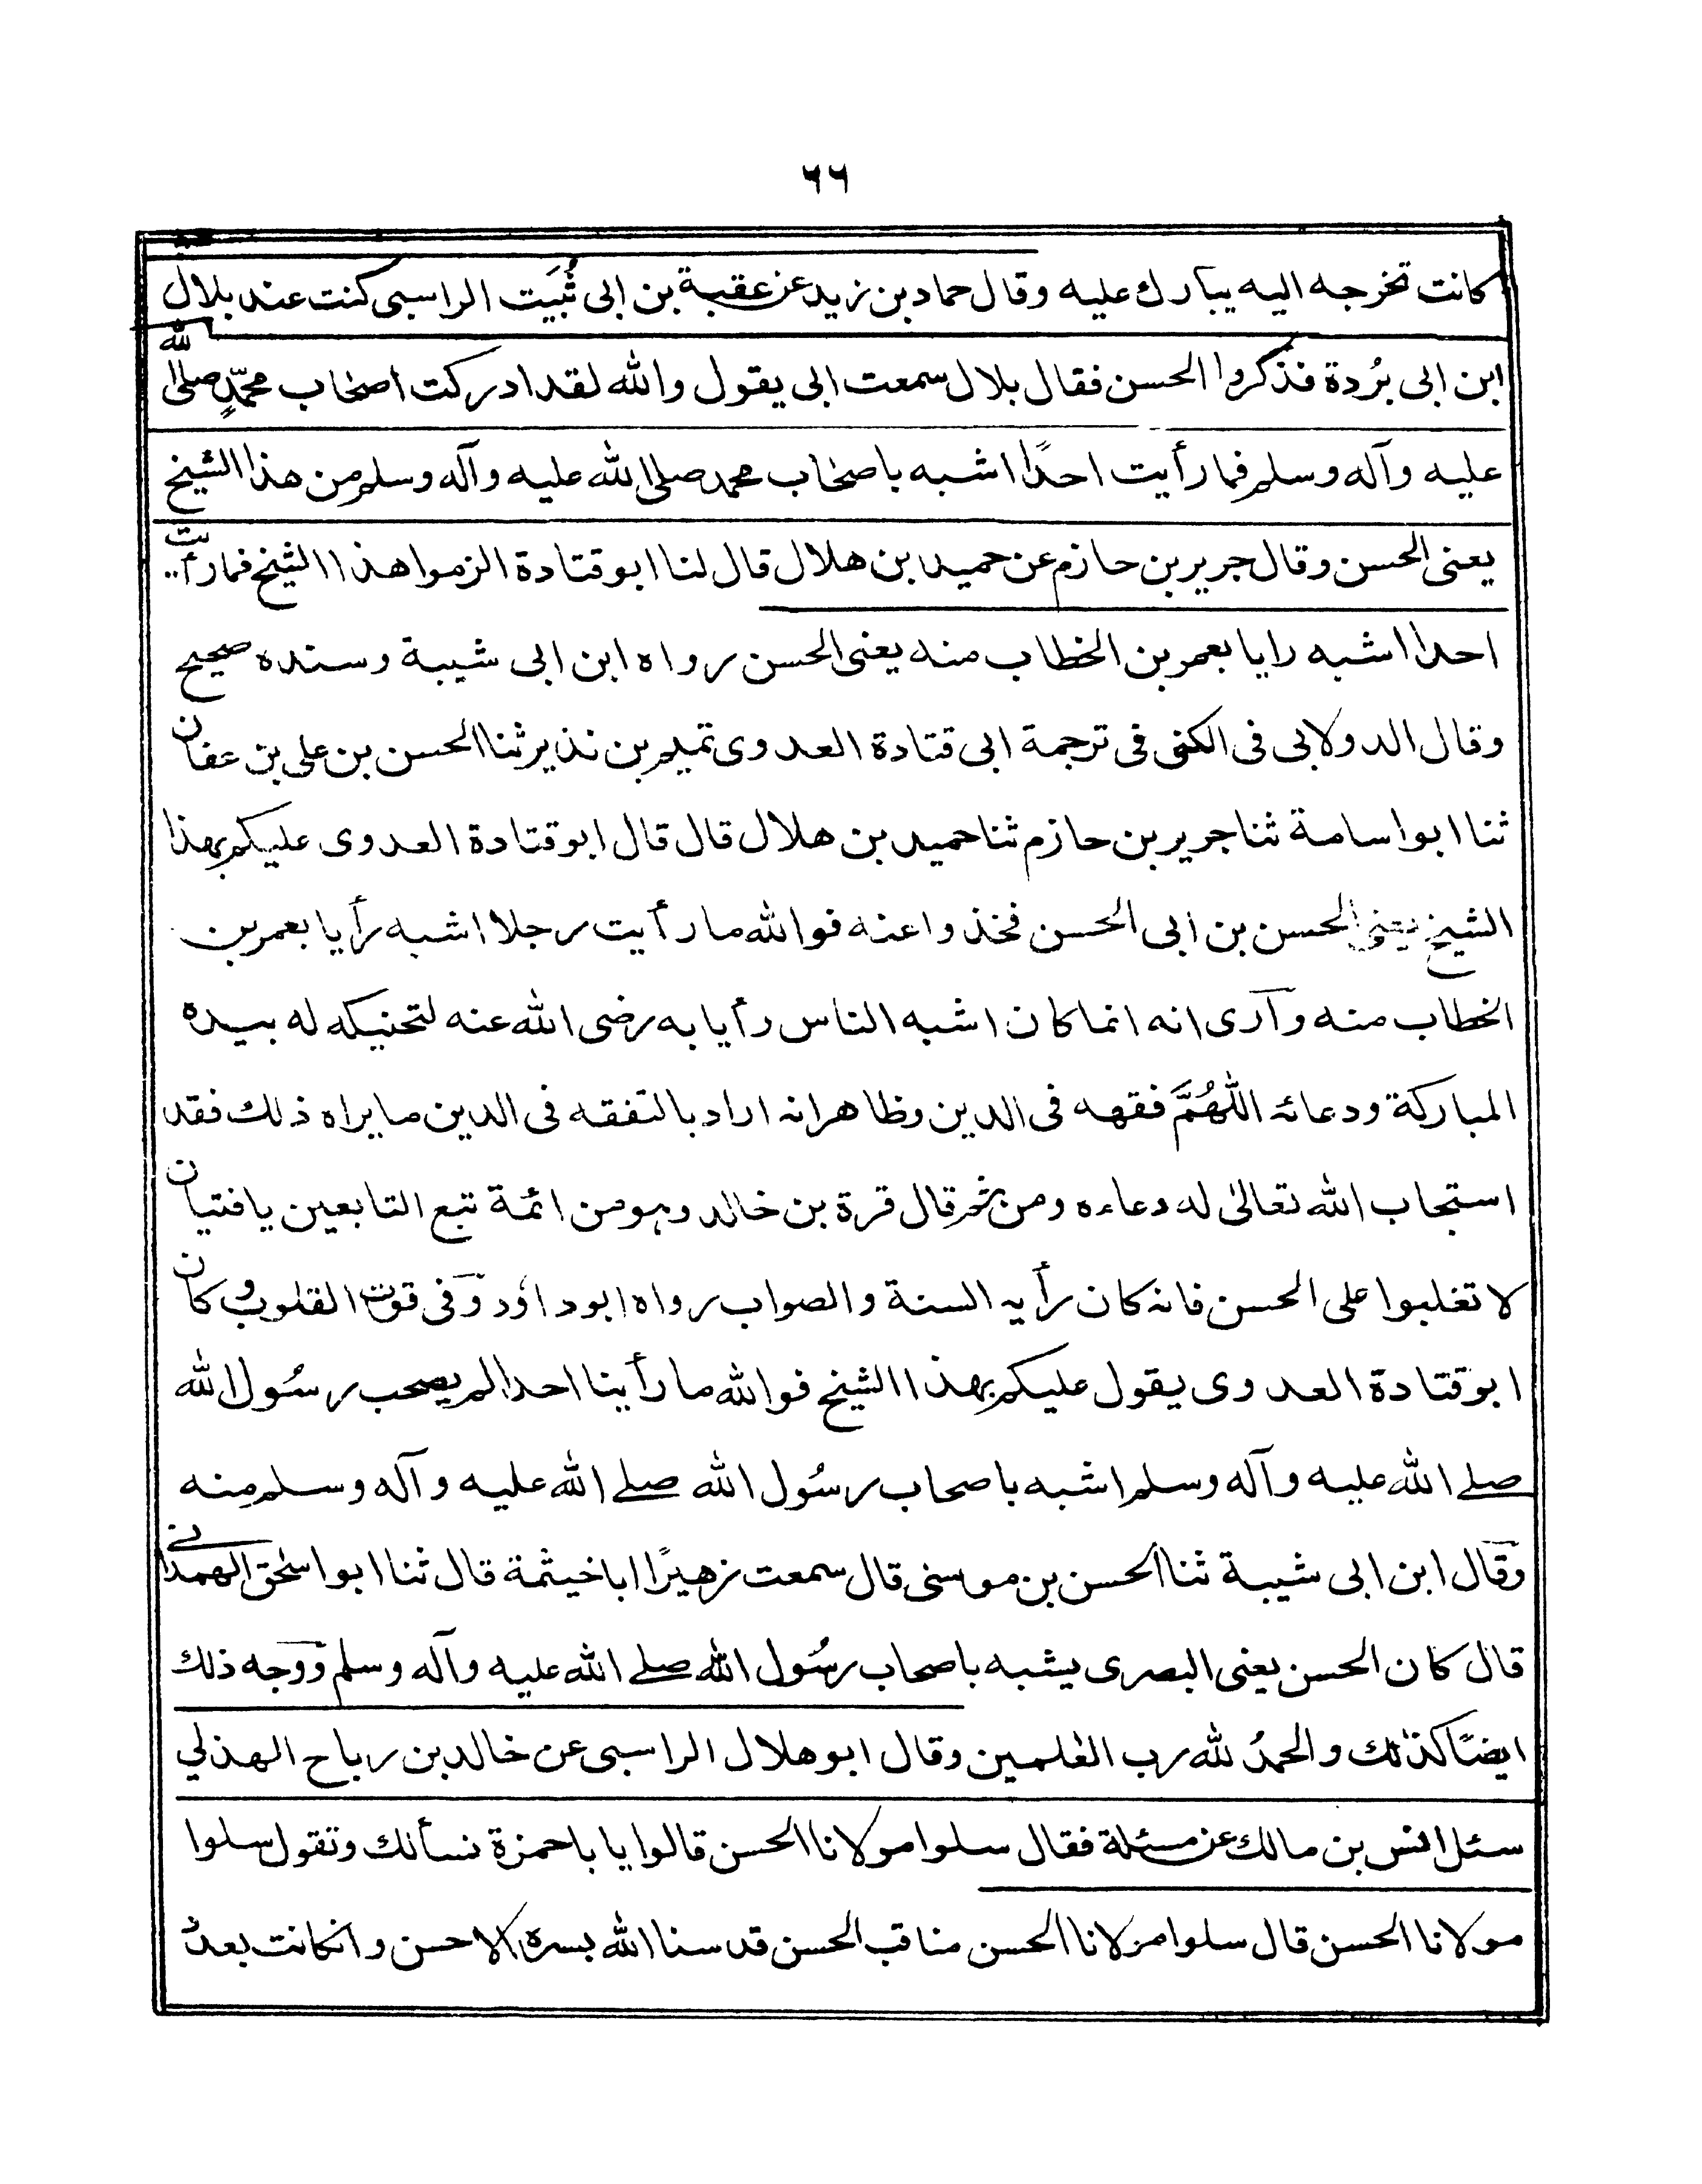 ٦٦
كانت تخرجه اليه يبارك عليه وقال حماد بن زيد عن عقبة بن ابى ثُبَيت الراسبى كنت عند بلال
ابن ابى بُردة فذكروا الحسن فقال بلال سمعت ابى يقول والله لقد ادركت اصحاب محمّدٍ صلى الله
عليه وآله وسلم فما رأيت احدًا اشبه باصحاب محمد صلى الله عليه وآله وسلم من هذا الشيخ
يعنى الحسن وقال جرير بن حازم عن حميد بن هلال قال لنا ابو قتادة الزموا هذا الشيخ فما رأيت
احدا اشبه رايا بعمر بن الخطاب منه يعنى الحسن رواه ابن ابى شيبة وسنده صحيح
وقال الدولابى فى الكنى فى ترجمة ابى قتادة العدوى تميم بن نذير ثنا الحسن بن على بن عفان
ثنا ابو اسامة ثنا جرير بن حازم ثنا حميد بن هلال قال قال ابو قتادة العدوى عليكم بهذا
الشيخ يعنى الحسن بن ابى الحسن فخذوا عنه فوالله ما رأيت رجلا اشبه رأيا بعمر بن
الخطاب منه وآرى انه انما كان اشبه الناس رأيا به رضى الله عنه لتحنيكه له بيده
المباركة ودعائه اللهُمَّ فقهه فى الدين وظاهر انه اراد بالتفقه فى الدين ما يراه ذلك فقد
استجاب الله تعالىٰ له دعاءه ومن ثم قال قرة بن خالد وهو من ائمة تبع التابعين يافتيان
لا تغلبوا على الحسن فانه كان رأيه السنة والصواب رواه ابو داؤد وفى قوت القلوب وكان
ابو قتادة العدوى يقول عليكم بهذا الشيخ فوالله ما رأينا احدا لم يصحب رسُول الله
صلے الله عليه وآله وسلم اشبه باصحاب رسُول الله صلے الله عليه وآله وسلم منه
وقال ابن ابى شيبة ثنا الحسن بن موسىٰ قال سمعت زهيرًا ابا خيثمة قال ثنا ابو اسحٰق الهمدانے
قال كان الحسن يعنى البصرى يشبه باصحاب رسُول الله صلے الله عليه وآله وسلم ووجه ذلك
ايضًا كذٰلك والحمدُ لله رب العٰلمين وقال ابو هلال الراسبى عن خالد بن رباح الهذلي
سئل انس بن مالك عن مسئلة فقال سلوا مولانا الحسن قالوا يا باحمزة نسألك وتقول سلوا
مولانا الحسن قال سلوا مولانا الحسن مناقب الحسن قدسنا الله بسره الاحسن وانكانت بعد